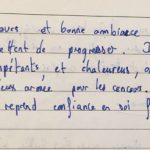 ours et bonne ambiance
ettent de progresser.
pétents et chaleureux,
armée pour les concours.
reprend confiance en soi